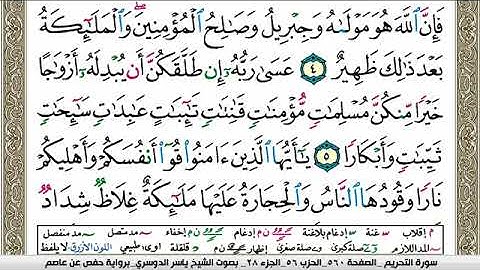 فَإِنَّ ٱللَّهَ هُوَ مَوْلَىٰهُ وَجِبْرِيلُ وَصَٰلِحُ ٱلْمُؤْمِنِينَۖ وَٱلْمَلَٰٓئِكَةُ
بَعْدَ ذَٰلِكَ ظَهِيرٌ ٤ عَسَىٰ رَبُّهُۥٓ إِن طَلَّقَكُنَّ أَن يُبْدِلَهُۥٓ أَزْوَٰجًا
خَيْرًا مِّنكُنَّ مُسْلِمَٰتٍ مُّؤْمِنَٰتٍ قَٰنِتَٰتٍ تَٰٓئِبَٰتٍ عَٰبِدَٰتٍ سَٰٓئِحَٰتٍ
ثَيِّبَٰتٍ وَأَبْكَارًا ٥ يَٰٓأَيُّهَا ٱلَّذِينَ ءَامَنُوا۟ قُوٓا۟ أَنفُسَكُمْ وَأَهْلِيكُمْ
نَارًا وَقُودُهَا ٱلنَّاسُ وَٱلْحِجَارَةُ عَلَيْهَا مَلَٰٓئِكَةٌ غِلَاظٌ شِدَادٌ
م إقلاب غنة إدغام بلاغنة إدغام إخفاء مد متصل مد منفصل
المد اللازم صلة كبرى وصلة صغرى إظهار قلقلة طبيعي اللون الأزرق لا يلفظ
سورة التحريم _ الصفحة ٥٦٠_ الحزب ٥٦_ الجزء ٢٨_ بصوت الشيخ ياسر الدوسري_ برواية حفص عن عاصم